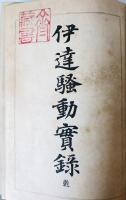 伊達騷動實錄 乾